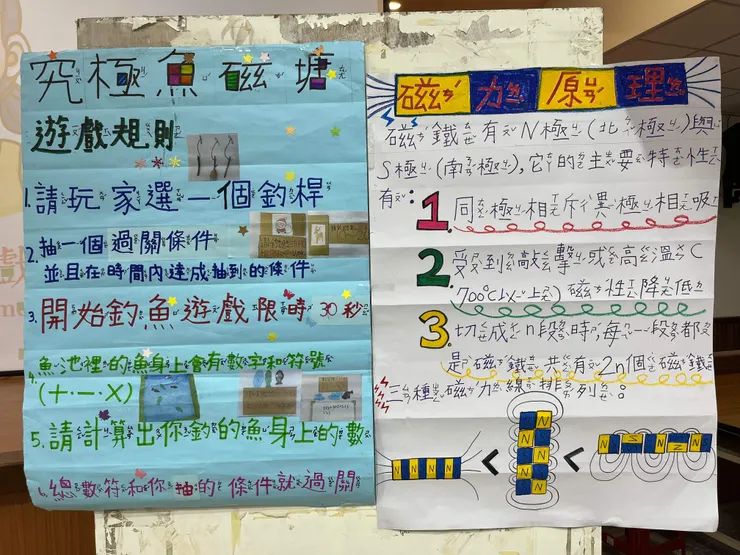 究極魚磁塘
遊戲規則
1.請玩家選一個釣桿
2.抽一個過關條件
並且在時間內達成抽到的條件
3.開始釣魚遊戲限時30秒
4.魚池裡的魚身上會有數字和符號
(+.-.×)
5.請計算出你釣的魚身上的數
6.總數符和你抽的條件就過關
磁力原理
磁鐵有N極(北極)與
S極(南極),它的主要特性
有:1.同極相斥異極相吸
2.受到敲擊或高溫(
700℃以上)磁性降低
3.切成n段時,每一段都
是磁鐵共有2n個磁鐵
三種磁力線排列:
N N N N < N N N N N < N S N N